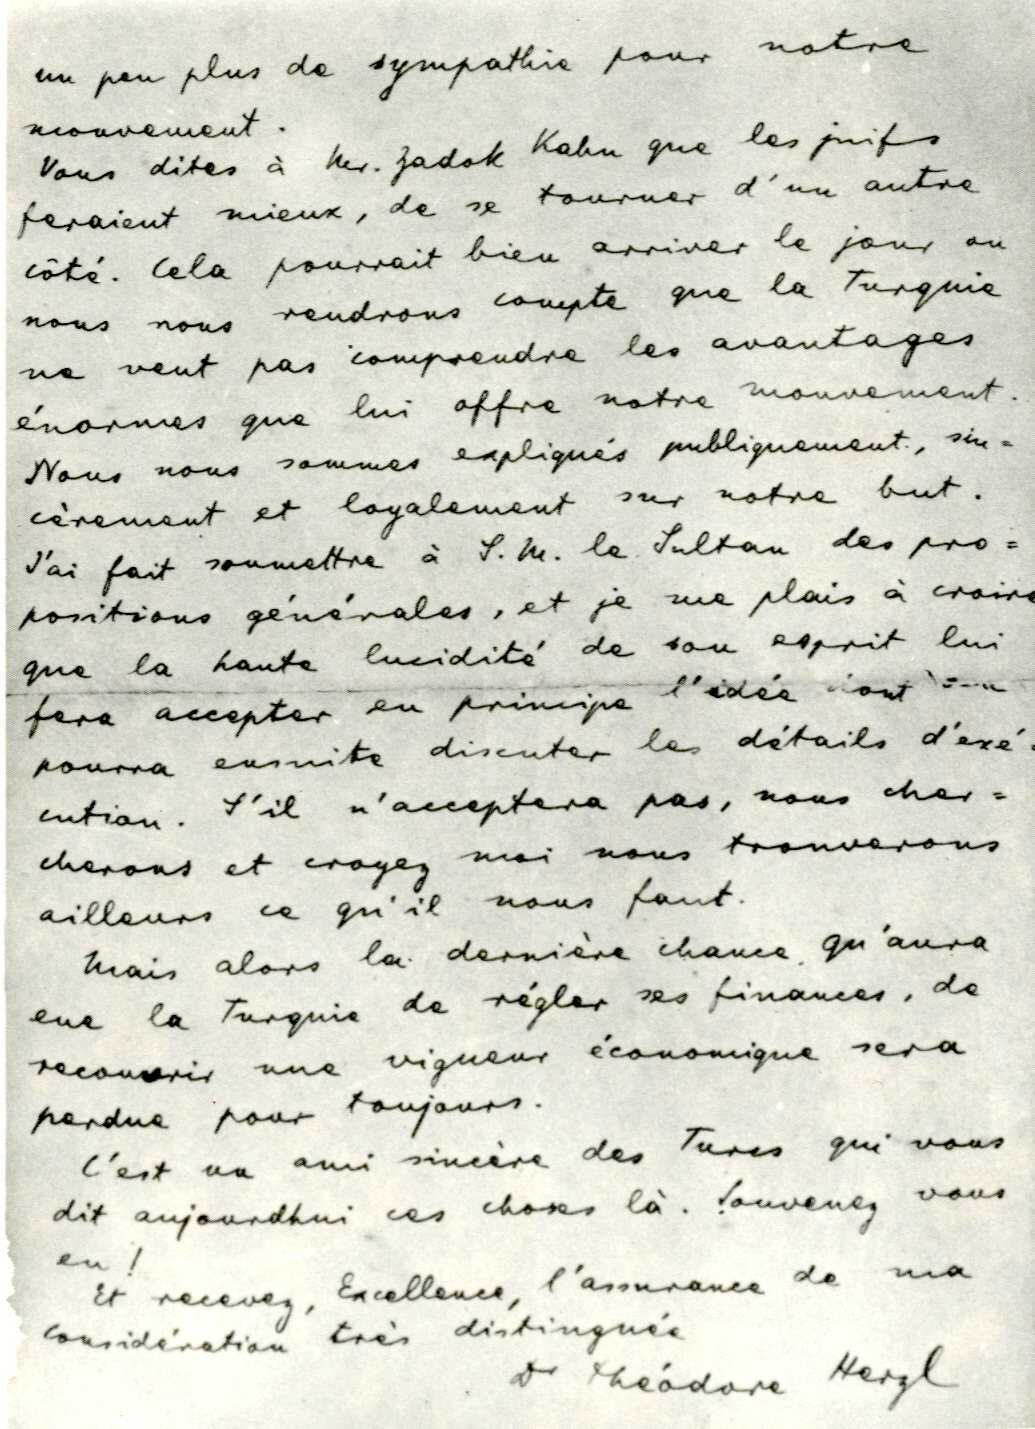 un peu plus de sympathie pour notre
mouvement.
Vous dites à Mr. Zadok Kahn que les juifs
feraient mieux, de se tourner d'un autre
côté. Cela pourrait bien arriver le jour ou
nous nous rendrons compte que la Turquie
ne veut pas comprendre les avantages
énormes que lui offre notre mouvement.
Nous nous sommes expliqués publiquement, sin=
cèrement et loyalement sur notre but.
J'ai fait soumettre à S. M. le Sultan des pro=
positions générales, et je me plais à croire
que la haute lucidité de son esprit lui
fera accepter en principe l'idée dont
pourra ensuite discuter les détails d'exé=
cution. S'il n'acceptera pas, nous cher=
cherons et croyez moi nous trouverons
ailleurs ce qu'il nous faut.
Mais alors la dernière chance qu'aura
eue la Turquie de régler ses finances, de
recouvrir une vigueur économique sera
perdue pour toujours.
C'est un ami sincère des Turcs qui vous
dit aujourdhui ces choses là. Souvenez vous
en!
Et recevez, Excellence, l'assurance de ma
considération très distinguée
Dr Théodore Herzl